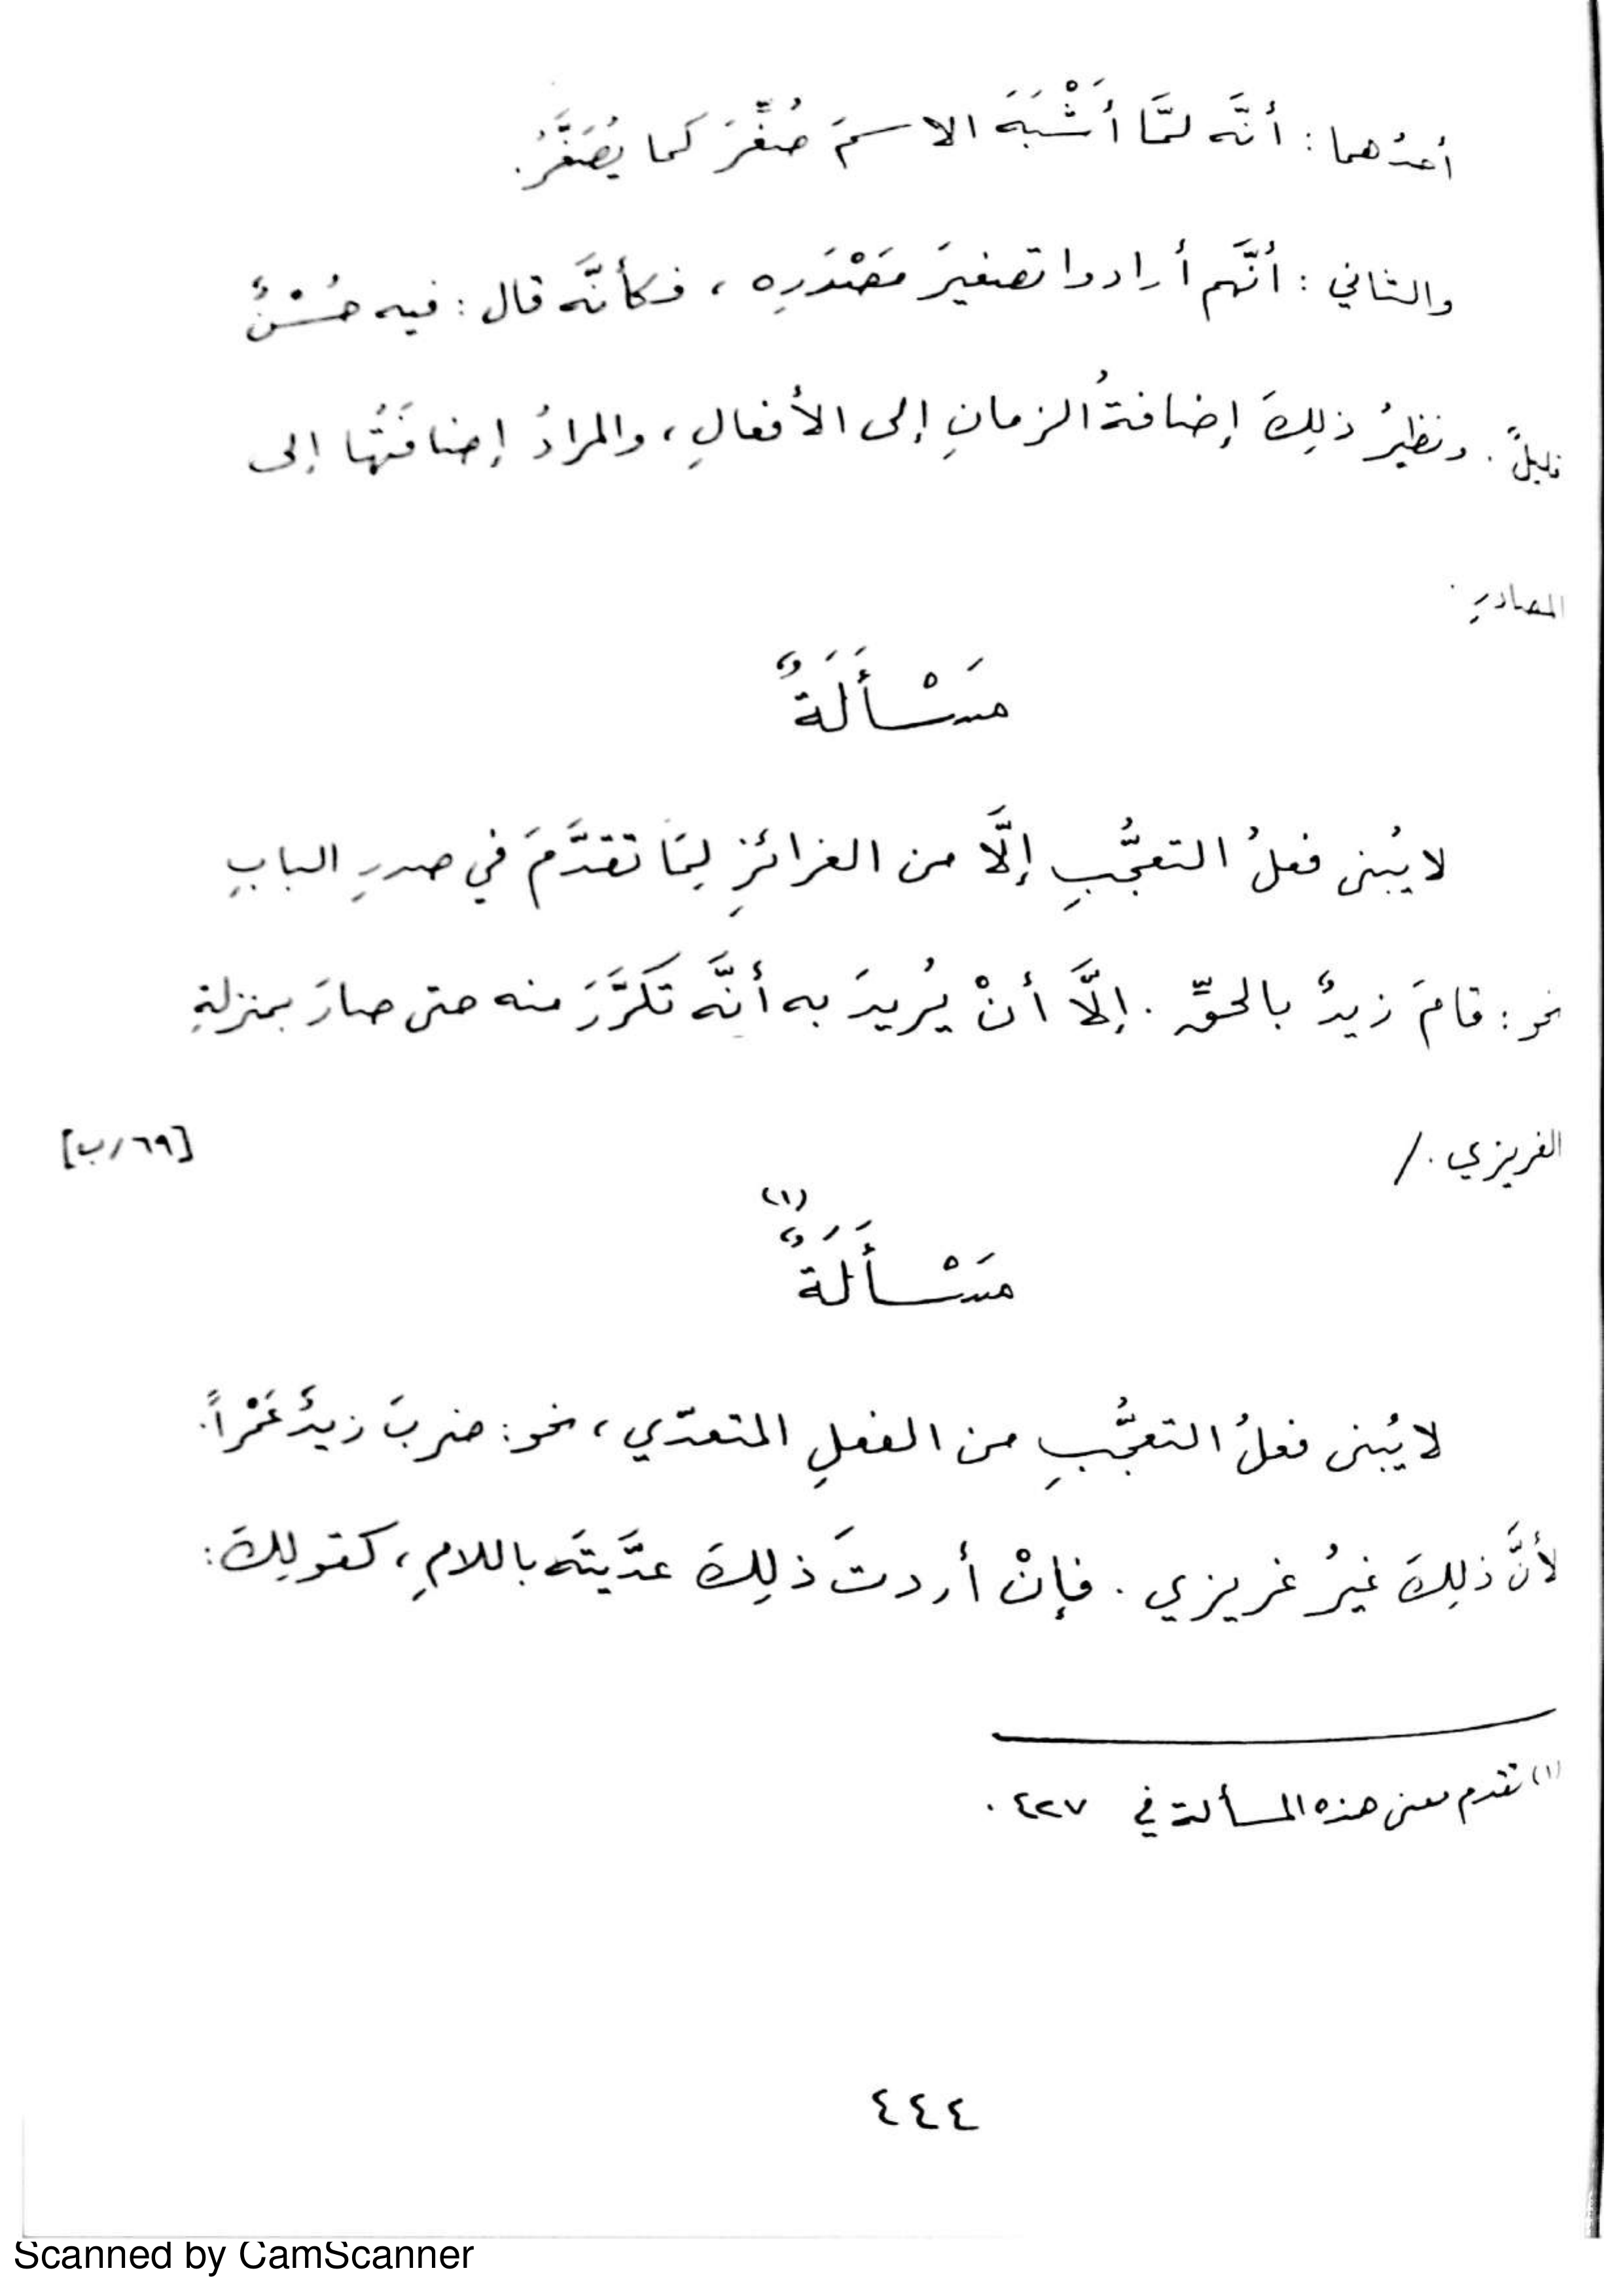 أحدُهما : أنَّه لمَّا أَشْبَهَ الاسمَ صُغِّرَ كما يُصَغَّرُ.
والثاني : أنَّهم أرادوا تصغيرَ مَصْدَرِه ، فكأنَّه قال : فيه حُسْنٌ
قليلٌ . ونظيرُ ذلِكَ إضافةُ الزمانِ إلى الأفعالِ ، والمرادُ إضافَتُها إلى
المصادرِ .
مَسْأَلَةٌ
لا يُبنى فعلُ التعجُّبِ إلَّا من الغرائزِ لِمَا تقدَّمَ في صدرِ البابِ
نحو : قامَ زيدٌ بالحقِّ . إلَّا أنْ يُريدَ به أنَّه تكَرَّرَ منه حتى صارَ بمنزلةِ
الغريزي . / [٦٩/ب]
مَسْأَلَةٌ (١)
لا يُبنى فعلُ التعجُّبِ من الفعلِ المتعدّي ، نحو : ضربَ زيدٌ عَمْراً .
لأنَّ ذلِكَ غيرُ غريزي . فإنْ أردتَ ذلِكَ عدَّيتَه باللامِ ، كقولِكَ :
(١) تقدم معنى هذه المسألة في ٤٢٧ .
٤٤٤
Scanned by CamScanner